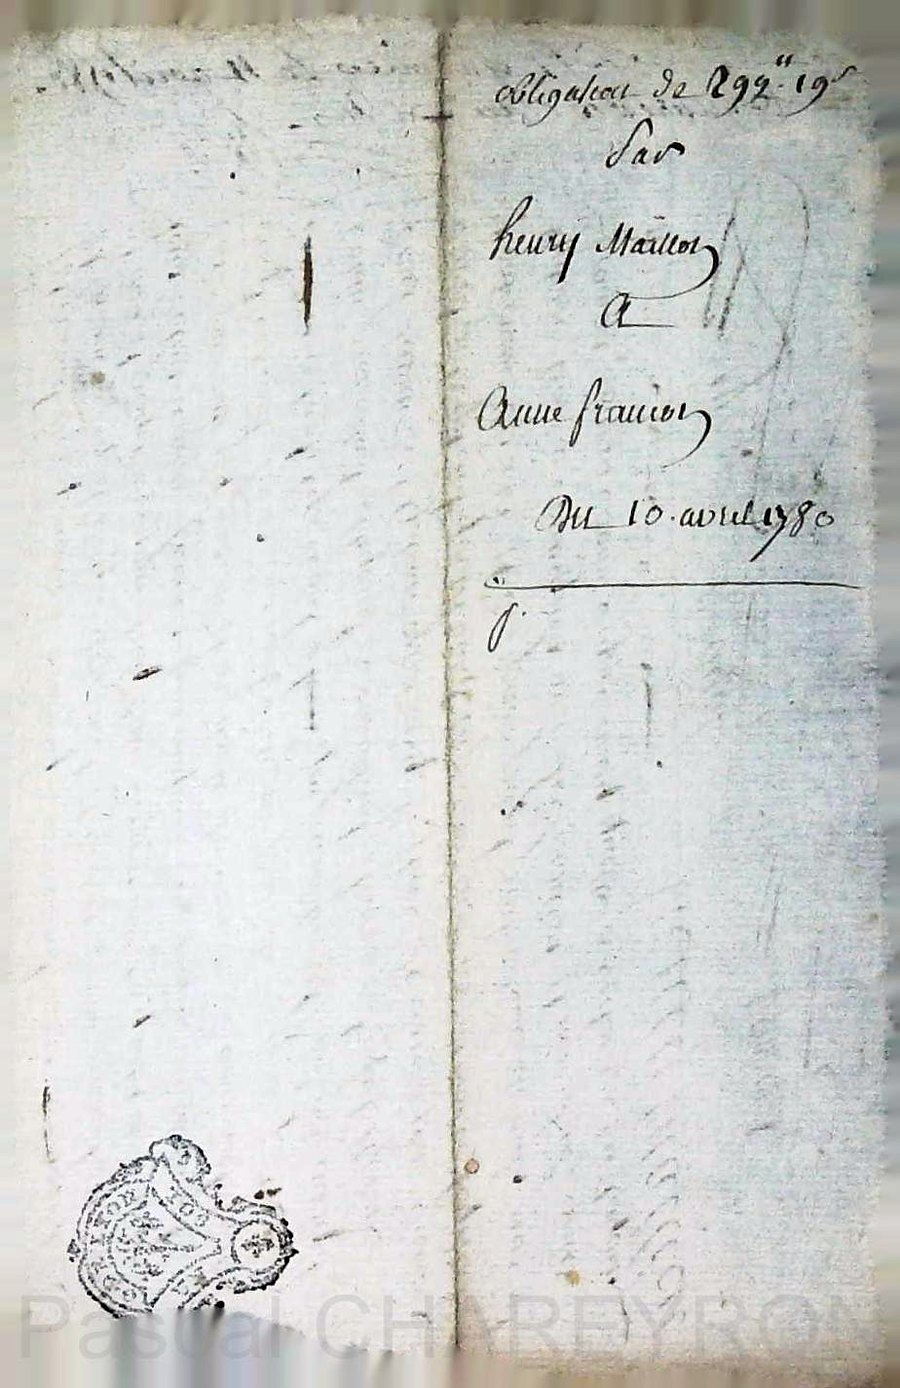 obligation de 299ᵗᵗ 19ˢ
Par
henry Maillot
a
Anne francon
Du 10. avril 1780
Pascal CHAREYRON